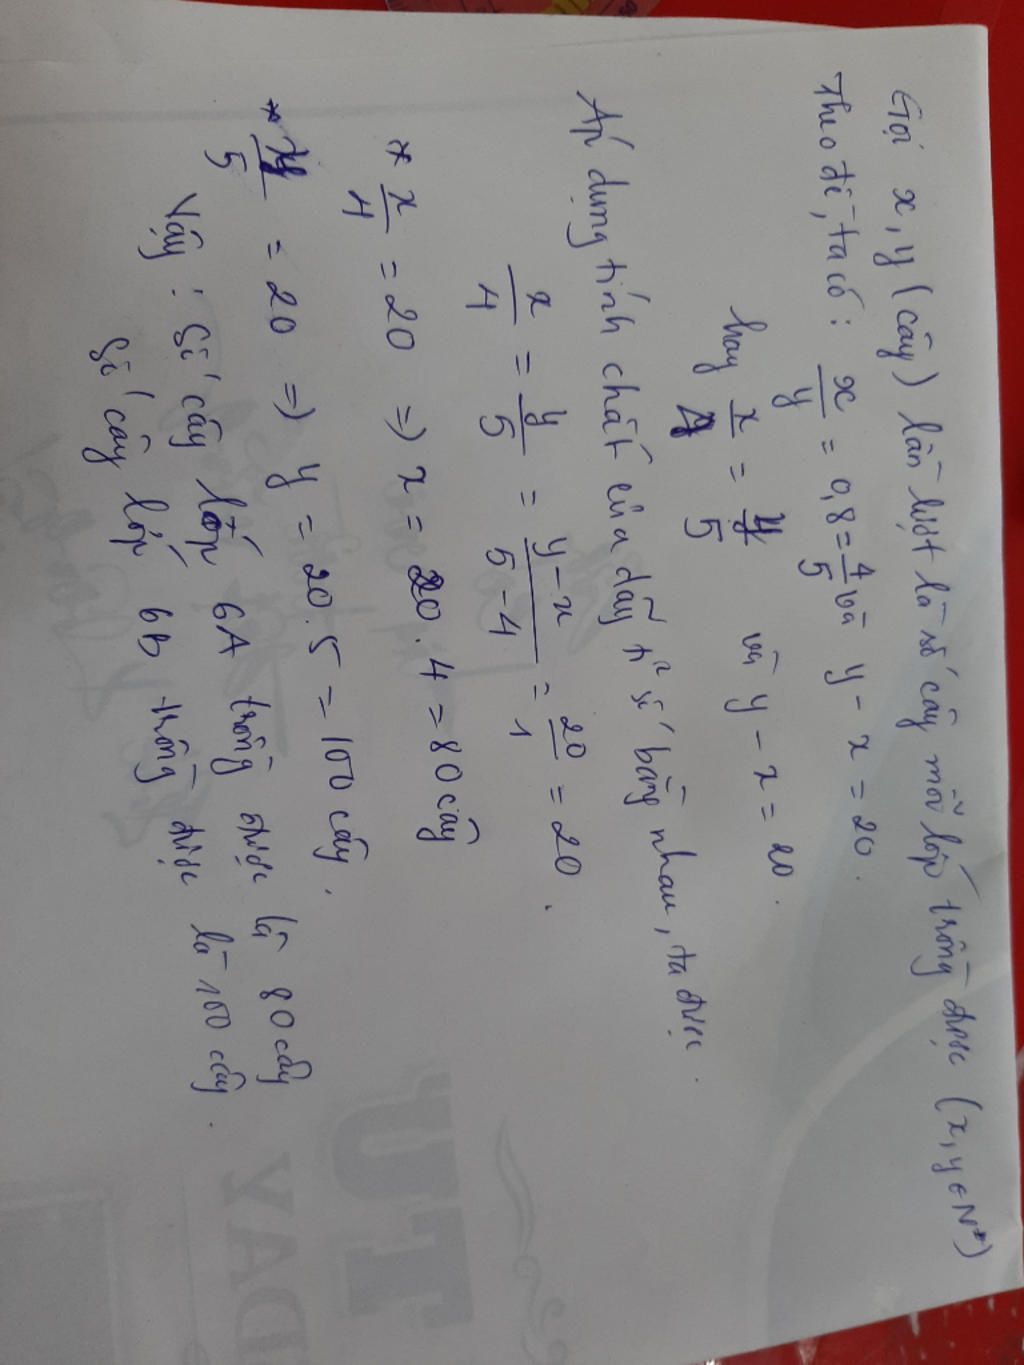 Gọi x, y (cây) lần lượt là số cây mỗi lớp trồng được (x, y ∈ N*)
Theo đề, ta có: x/y = 0,8 = 4/5 và y - x = 20.
hay x/4 = y/5 và y - x = 20.
Áp dụng tính chất của dãy tỉ số bằng nhau, ta được.
x/4 = y/5 = y-x/5-4 = 20/1 = 20.
* x/4 = 20 => x = 20.4 = 80 cây
* y/5 = 20 => y = 20.5 = 100 cây.
Vậy: Số cây lớp 6A trồng được là 80 cây
Số cây lớp 6B trồng được là 100 cây.
UT